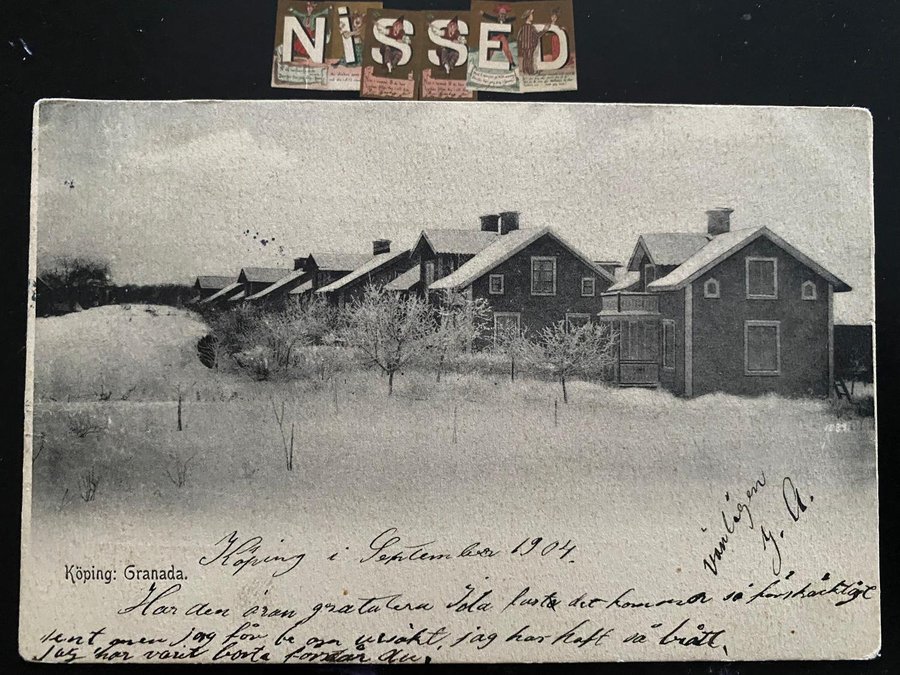 NiSSED
1089
vänligen
J. A.
Köping i September 1904.
Köping: Granada.
Har den äran gratulera Ida fast det kommer så förskräckligt
sent men jag får be om ursäkt, jag har haft så brått,
jag har varit borta förstår du.